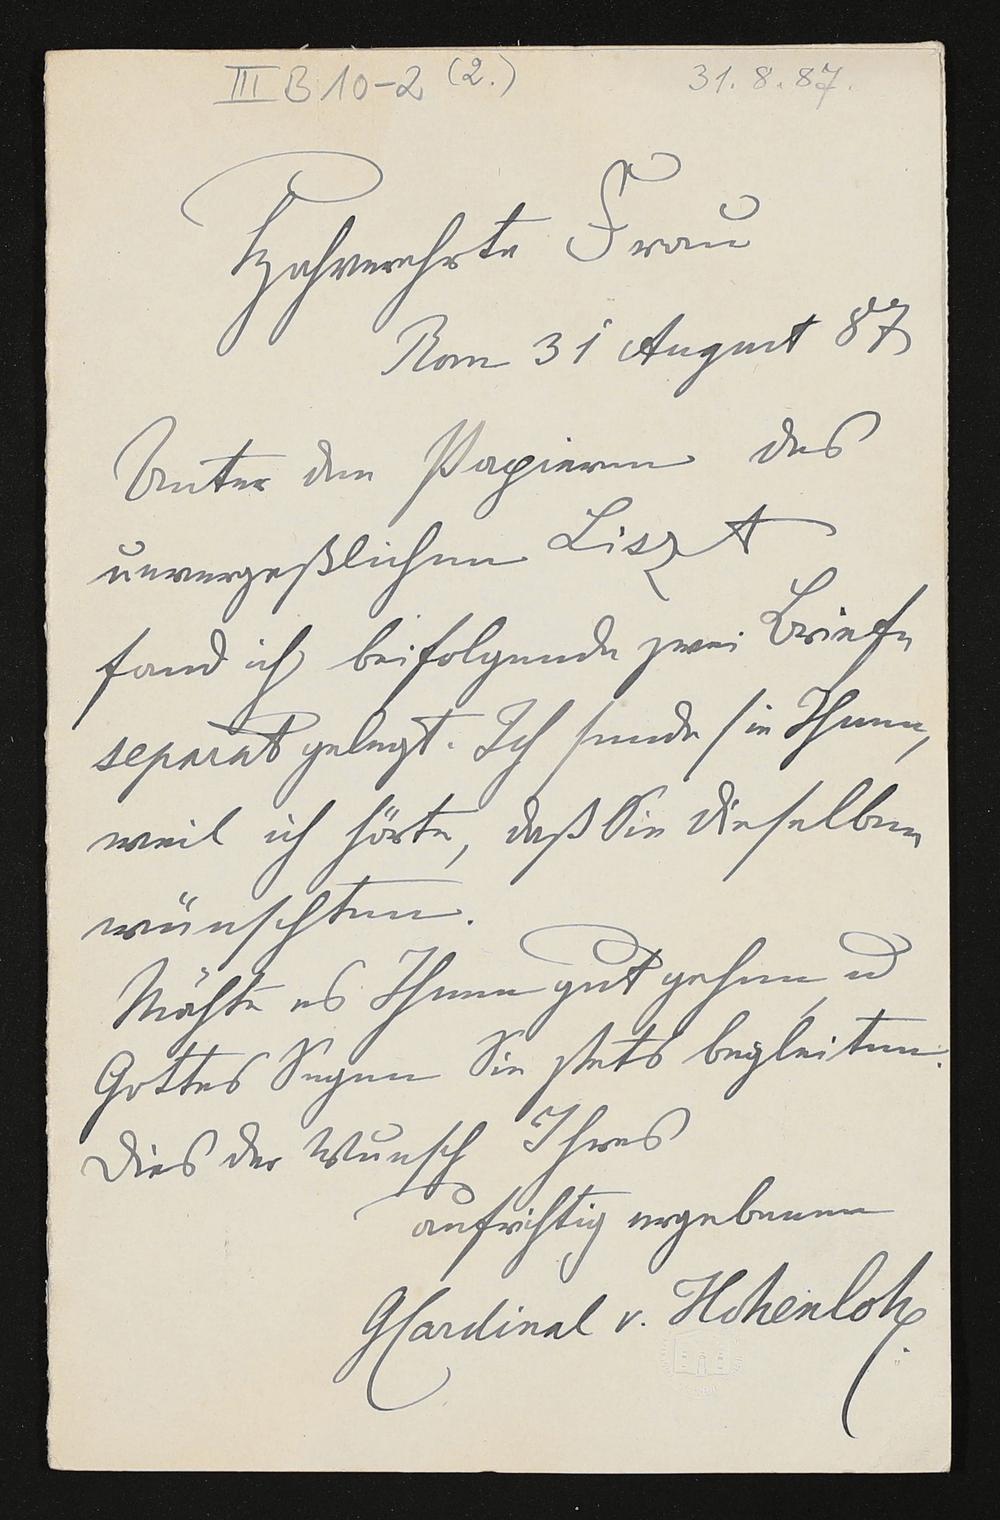 III B 10-2 (2.)
31. 8. 87.
Hochverehrte Frau
Rom 31 August 87
Unter den Papieren des
unvergeßlichen Liszt
fand ich beifolgende zwei Briefe
separat gelegt. Ich sende sie Ihnen,
weil ich hörte, daß Sie dieselben
wünschten.
Möchte es Ihnen gut gehen, u
Gottes Segen Sie stets begleiten.
Dies der Wunsch Ihres
aufrichtig ergebenen
GCardinal v. Hohenlohe.